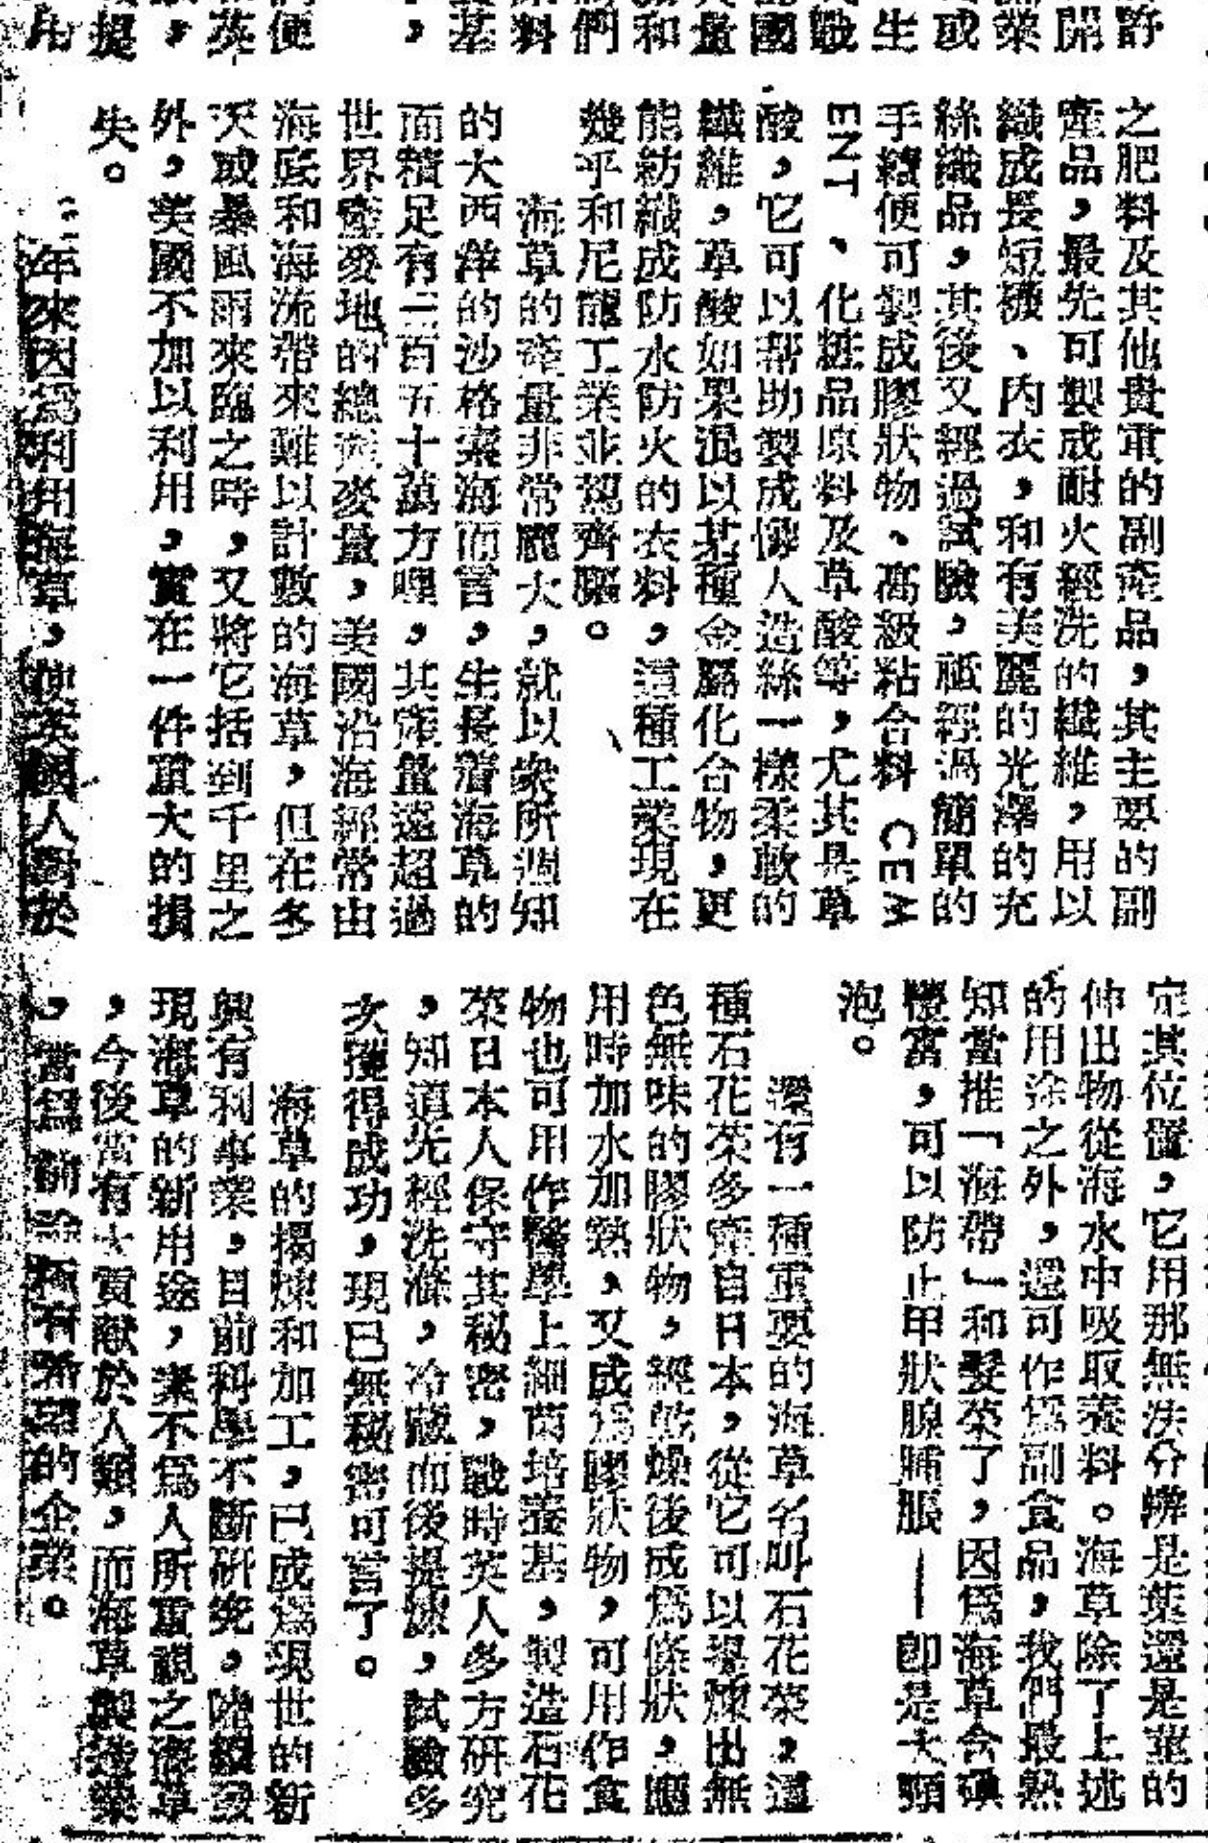 許
開
業
或
生
戰
國
量
和
們
料
基
，
便
英
，
提
之肥料及其他貴重的副產品，其主要的副
產品，最先可製成耐火經洗的纖維，用以
織成長短襪、內衣，和有美麗的光澤的充
絲織品，其後又經過試驗，祗經過簡單的
手續便可製成膠狀物、高級粘合料 CEM
ENT 、化粧品原料及草酸等，尤其是草
酸，它可以帮助製成像人造絲一樣柔軟的
纖維，草酸如果混以某種金屬化合物，更
能紡織成防水防火的衣料，這種工業現在
幾乎和尼龍工業並駕齊驅。
海草的產量非常龐大，就以衆所週知
的大西洋的沙格索海而言，生長着海草的
面積足有二百五十萬方哩，其產量遠超過
世界產麥地的總產麥量，美國沿海經常由
海底和海流帶來難以計數的海草，但在多
天或暴風雨來臨之時，又將它括到千里之
外，美國不加以利用，實在一件重大的損
失。
年來因爲利用海草，使英國人對於
定其位置，它用那無法分辨是葉還是莖的
伸出物從海水中吸取養料。海草除了上述
的用途之外，還可作爲副食品，我們最熟
知當推「海帶」和髮菜了，因爲海草含碘
豐富，可以防止甲狀腺腫脹——卽是大頸
泡。
還有一種重要的海草名叫石花菜，這
種石花菜多產自日本，從它可以提煉出無
色無味的膠狀物，經乾燥後成爲條狀，應
用時加水加熱，又成爲膠狀物，可用作食
物也可用作醫學上細菌培養基，製造石花
菜日本人保守其秘密，戰時英人多方研究
，知道先經洗滌，冷藏而後提煉，試驗多
次獲得成功，現已無秘密可言了。
海草的提煉和加工，已成爲現世的新
興有利事業，目前科學不斷研究，陸續發
現海草的新用途，素不爲人所重視之海草
，今後當有大貢献於人類，而海草製造業
，當爲前途極有希望的企業。